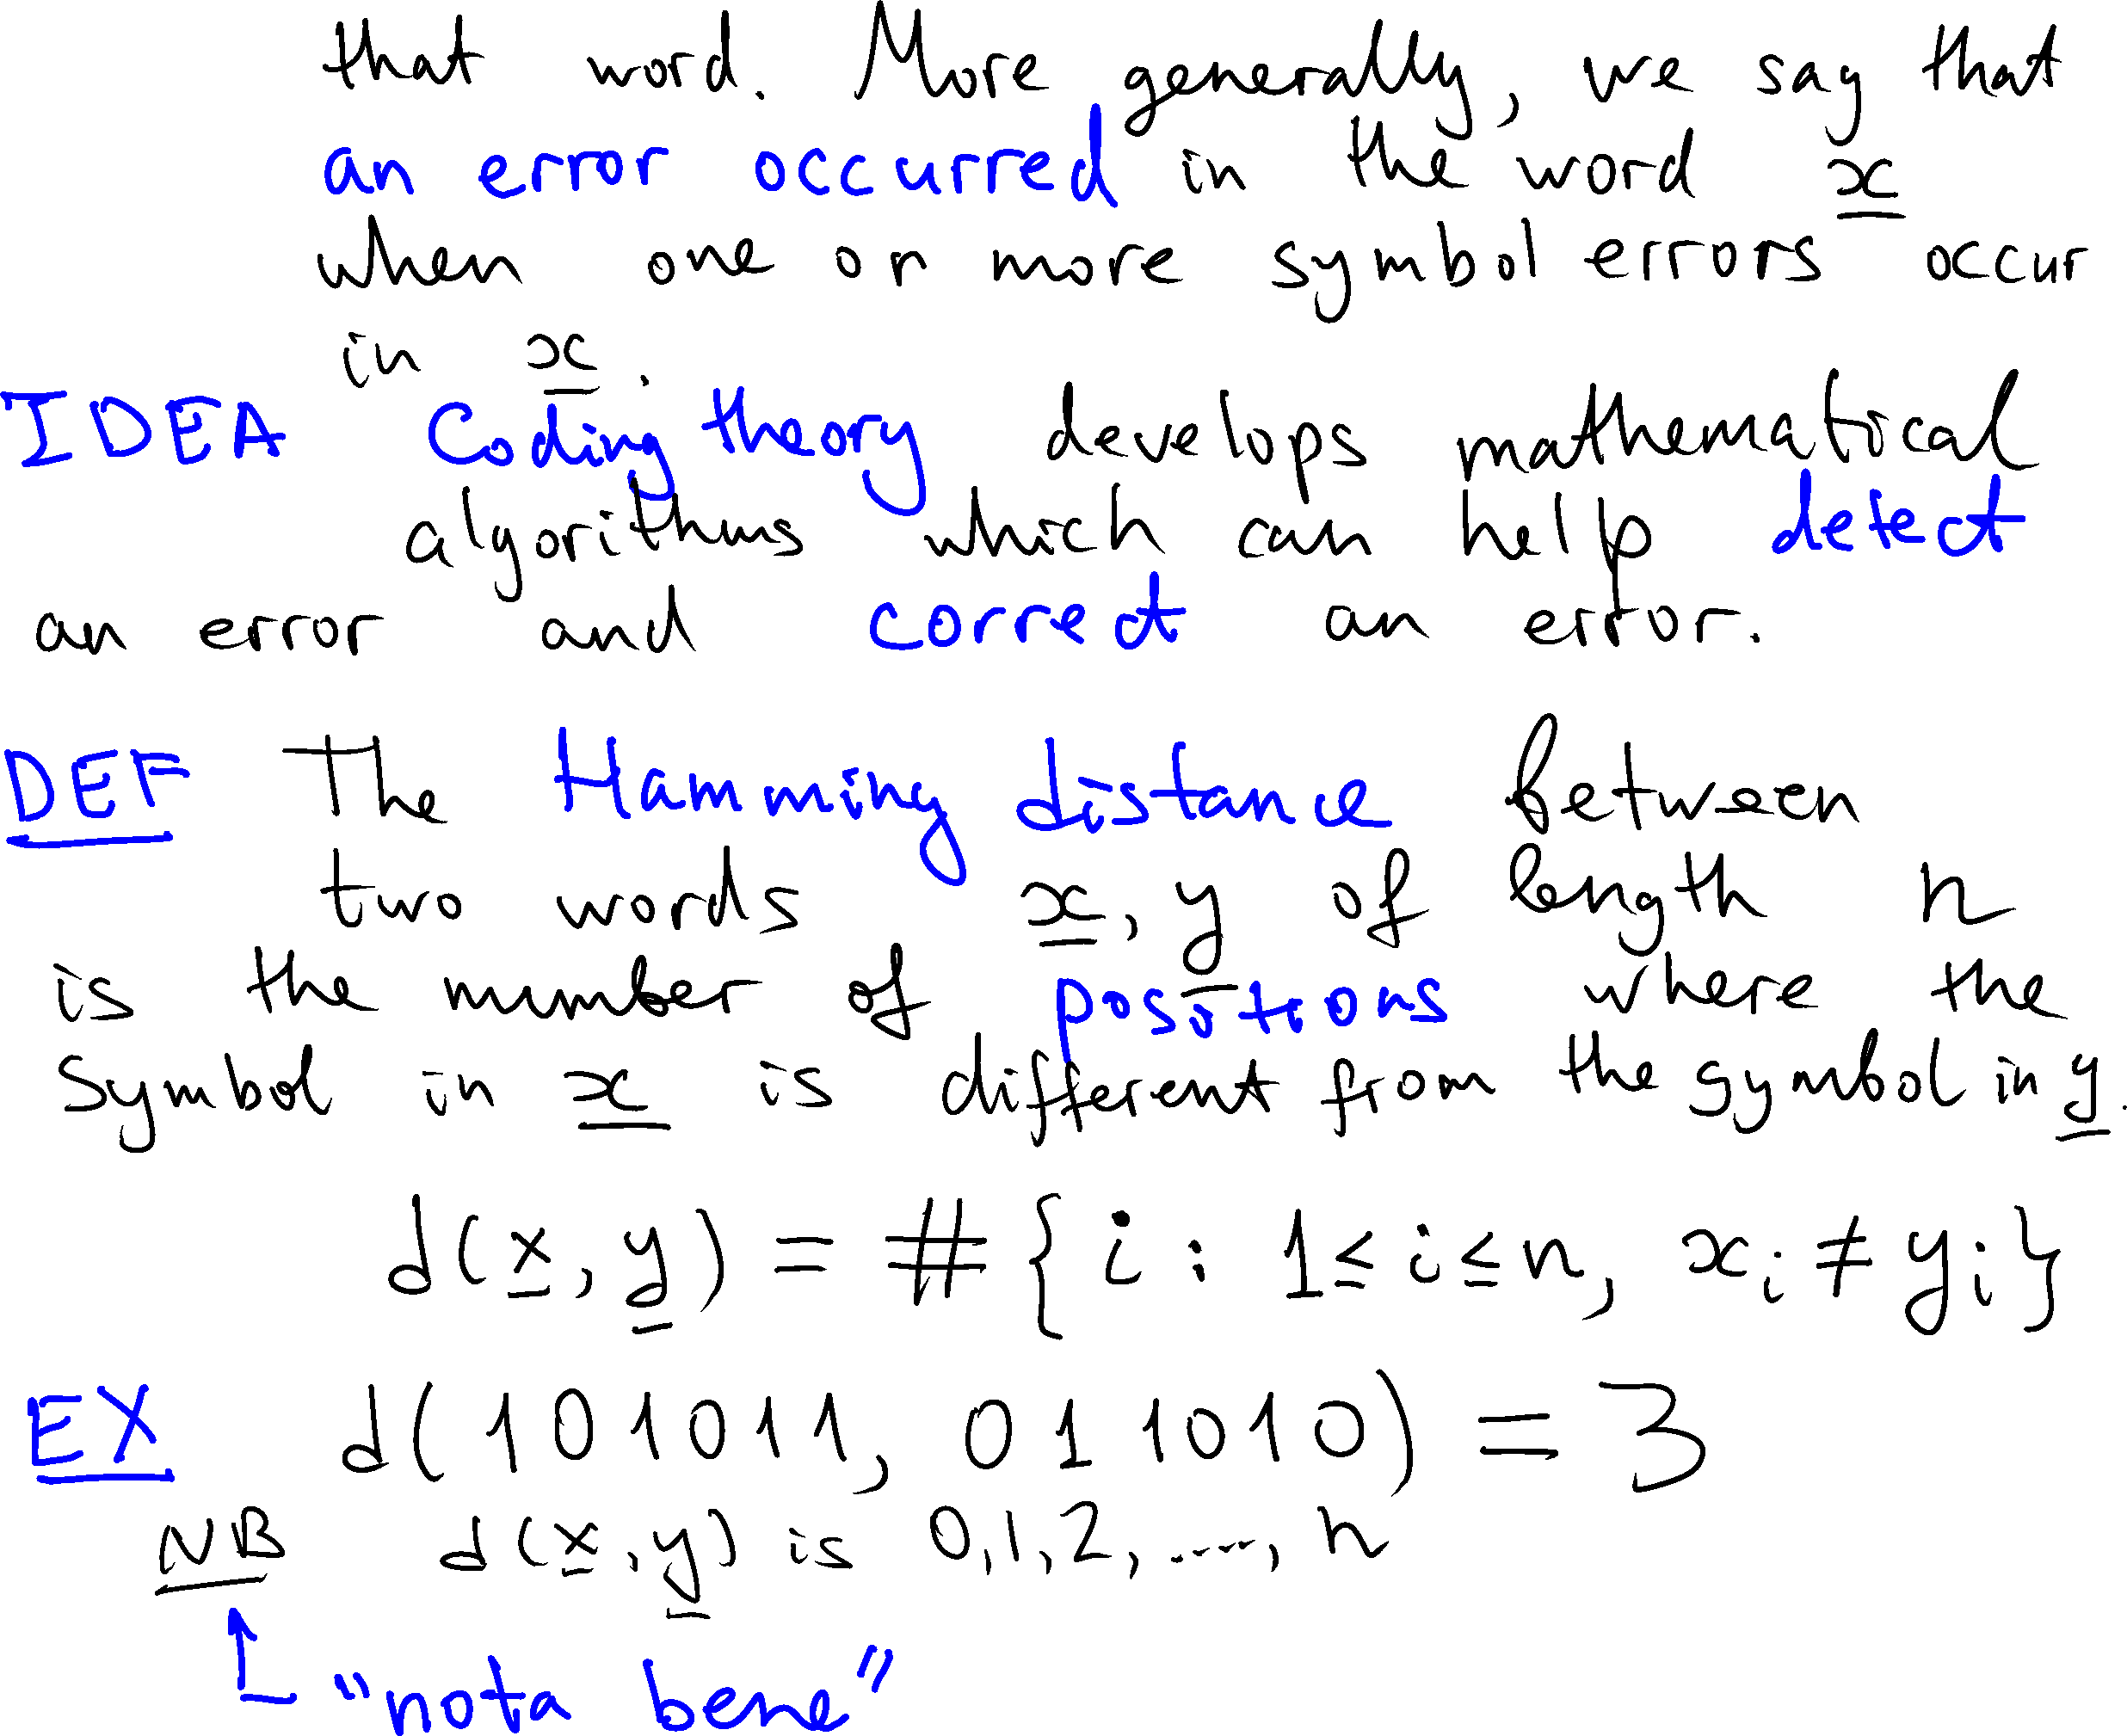 that word. More generally, we say that
an error occurred in the word x
when one or more symbol errors occur
in x.
IDEA Coding theory develops mathematical
algorithms which can help detect
an error and correct an error.
DEF The Hamming distance between
two words x, y of length n
is the number of positions where the
symbol in x is different from the symbol in y.
d(x, y) = #{i : 1≤i≤n, xᵢ ≠ yᵢ}
EX d(101011, 011010) = 3
NB d(x,y) is 0,1,2,....., n
"nota bene"